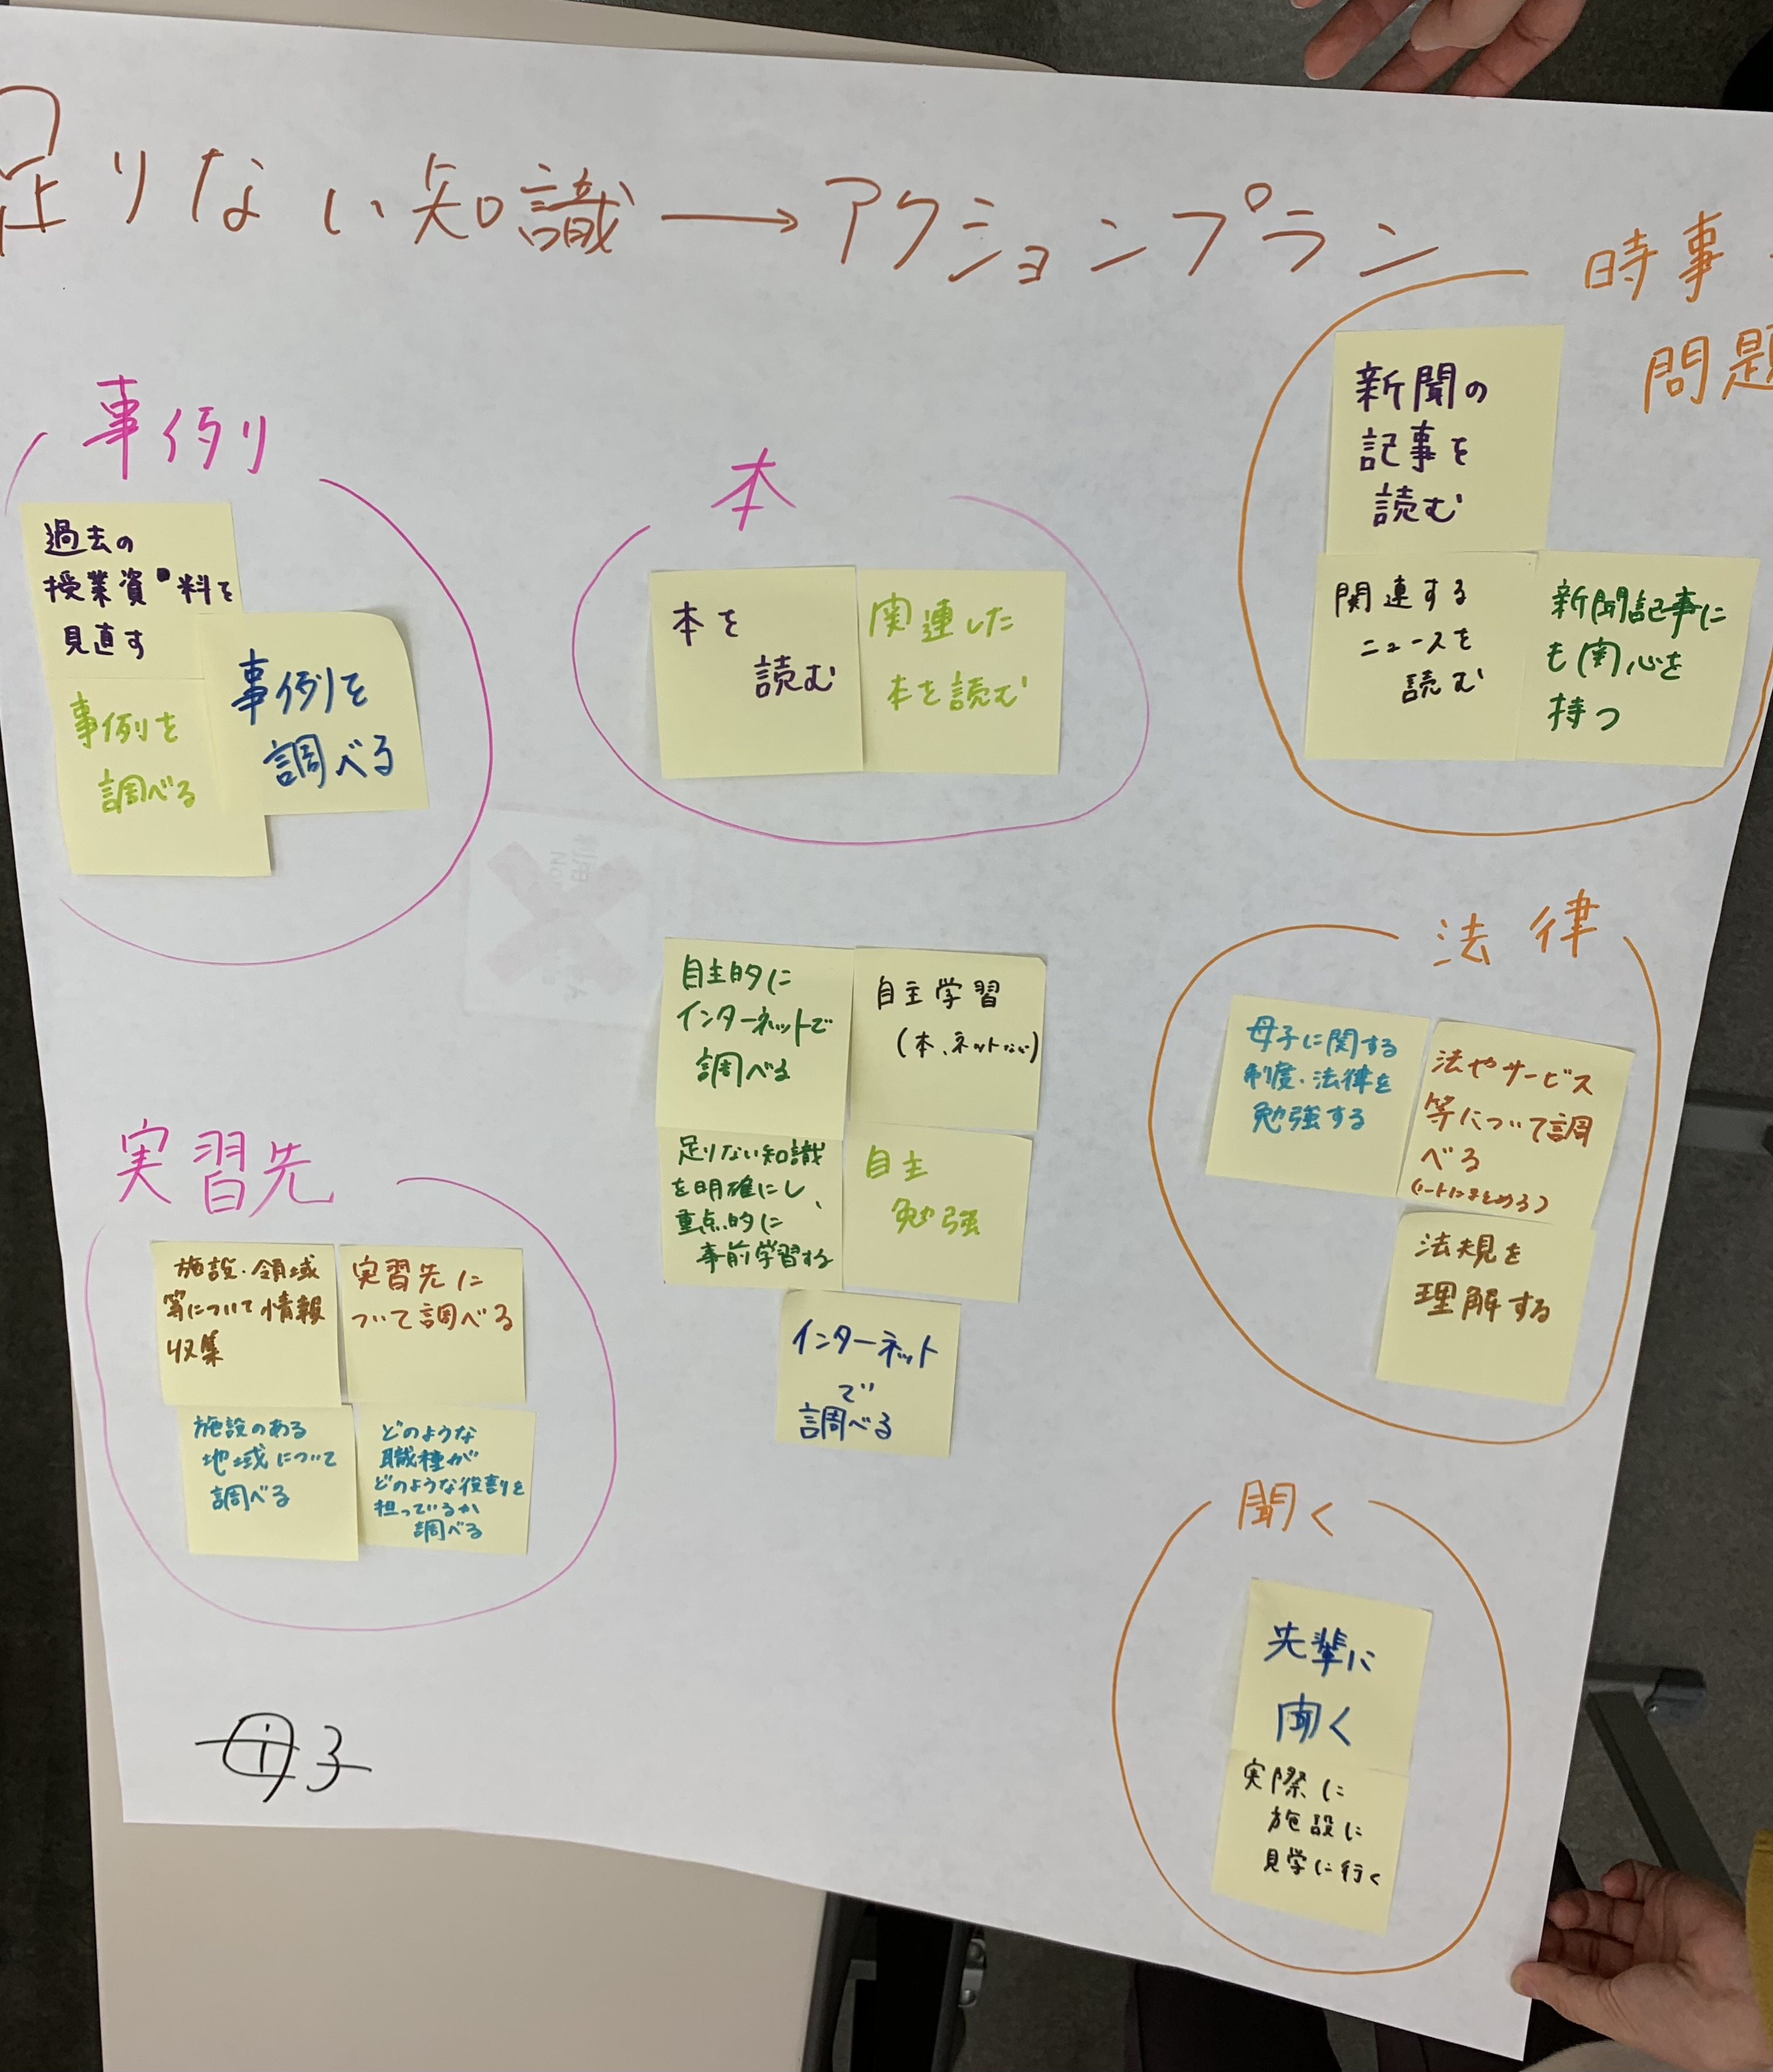 足りない知識→アクションプラン
事例
過去の
授業資料を
見直す
事例を
調べる
事例を
調べる
本
本を
読む
関連した
本を読む
時事
問題
新聞の
記事を
読む
関連する
ニュースを
読む
新聞記事に
も関心を
持つ
実習先
施設・領域
等について情報
収集
実習先に
ついて調べる
施設のある
地域について
調べる
どのような
職種が
どのような役割を
担っているか
調べる
自主的に
インターネットで
調べる
自主学習
(本、ネットなど)
足りない知識
を明確にし、
重点的に
事前学習する
自主
勉強
インターネット
で
調べる
法律
母子に関する
制度・法律を
勉強する
法やサービス
等について調
べる
(ノートにまとめる)
法規を
理解する
聞く
先輩に
聞く
実際に
施設に
見学に行く
母子